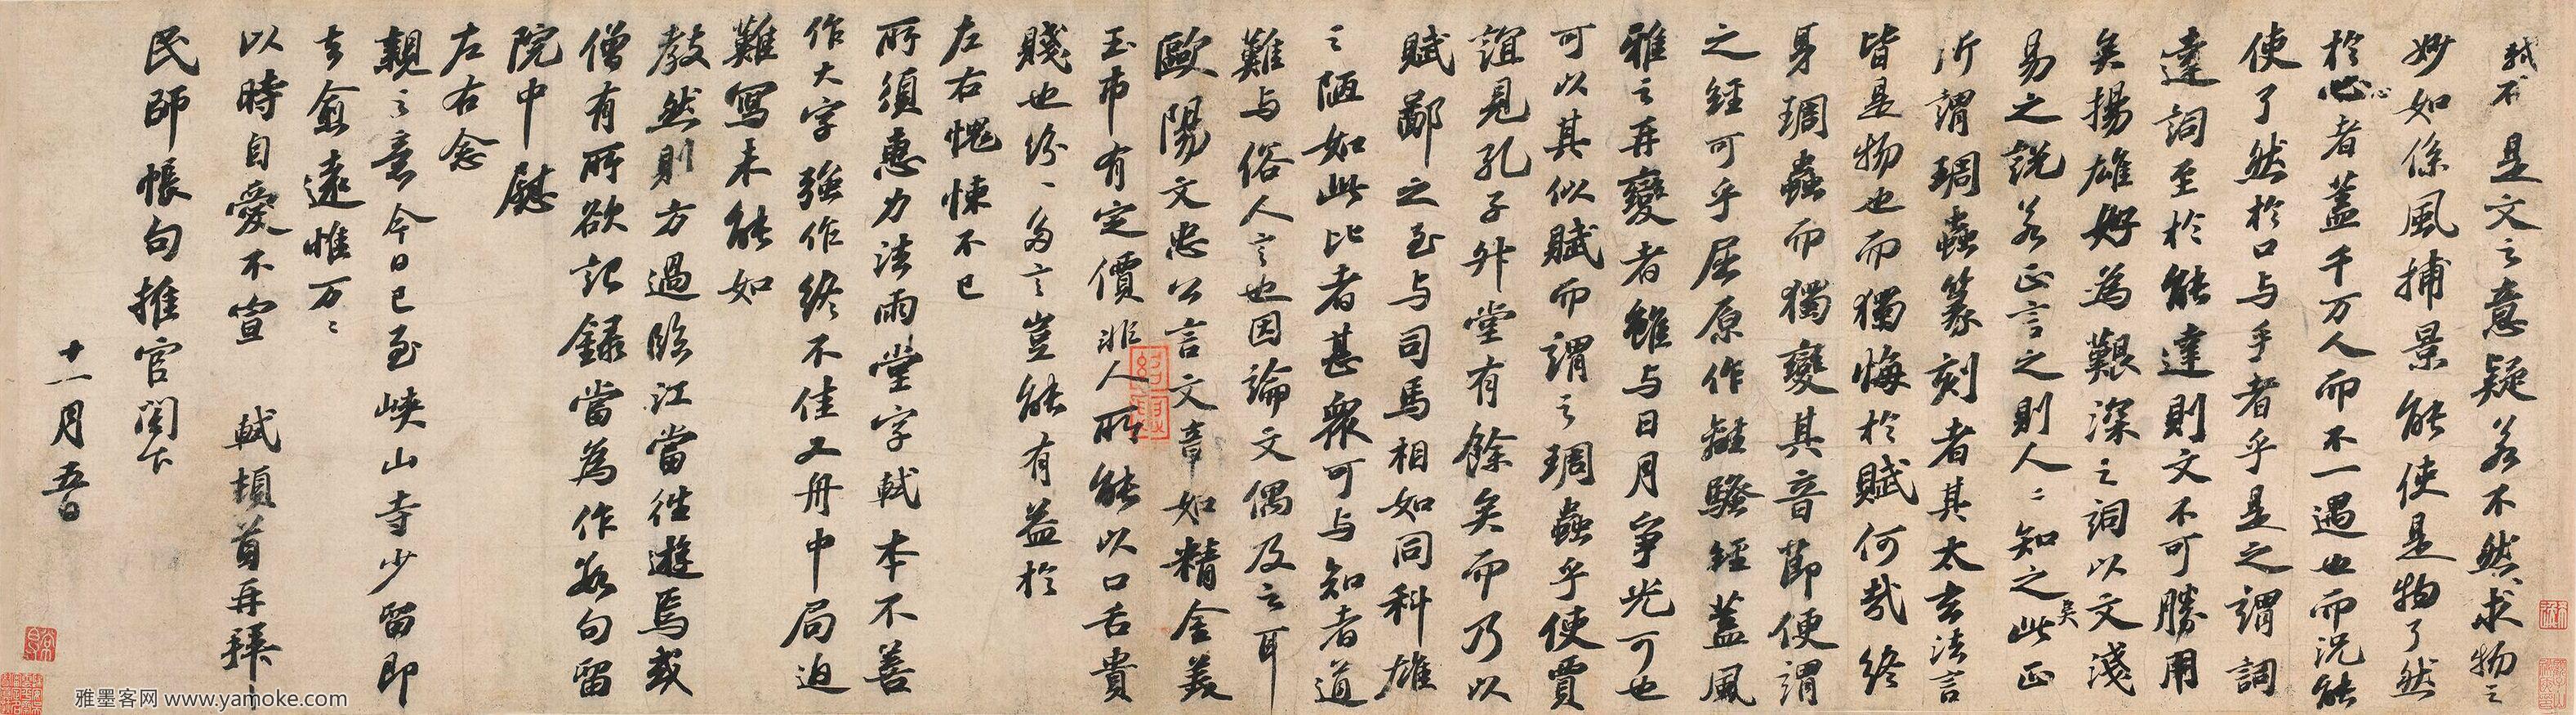 軾不 是文之意疑若不然求物之
妙如係風捕景能使是物了然
於心者蓋千万人而不一遇也而況能
使了然於口与手者乎是之謂詞
達詞至於能達則文不可勝用
矣揚雄好為艱深之詞以文淺
易之說若正言之則人〻知之矣此正
所謂琱蟲篆刻者其太玄法言
皆是物也而獨悔於賦何哉終
身琱蟲而獨變其音節便謂
之經可乎屈原作離騷經蓋風
雅之再變者雖与日月爭光可也
可以其似賦而謂之琱蟲乎使賈
誼見孔子升堂有餘矣而乃以
賦鄙之至与司馬相如同科雄
之陋如此比者甚衆可与知者道
難与俗人言也因論文偶及之耳
歐陽文忠公言文章如精金美
玉市有定價非人所能以口舌貴
賤也紛〻多言豈能有益於
左右愧悚不已
所須惠力法雨堂字軾本不善
作大字強作終不佳又舟中局迫
難寫未能如
教然則方過臨江當往遊焉或
僧有所欲記錄當為作數句留
院中慰
左右念
親之意今日已至峽山寺少留即
去愈遠惟万〻
以時自愛不宣 軾頓首再拜
民師帳句推官閣下
十一月五日
雅墨客网 www.yamoke.com